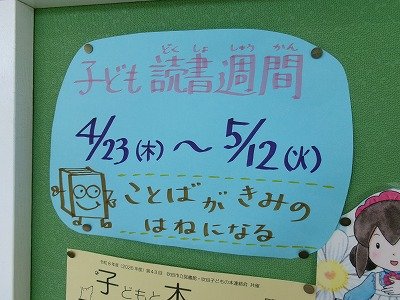 どくしょしゅうかん
子ども読書週間
4/23(木)～5/12(火)
ことばがきみの
はねになる
子どもと本